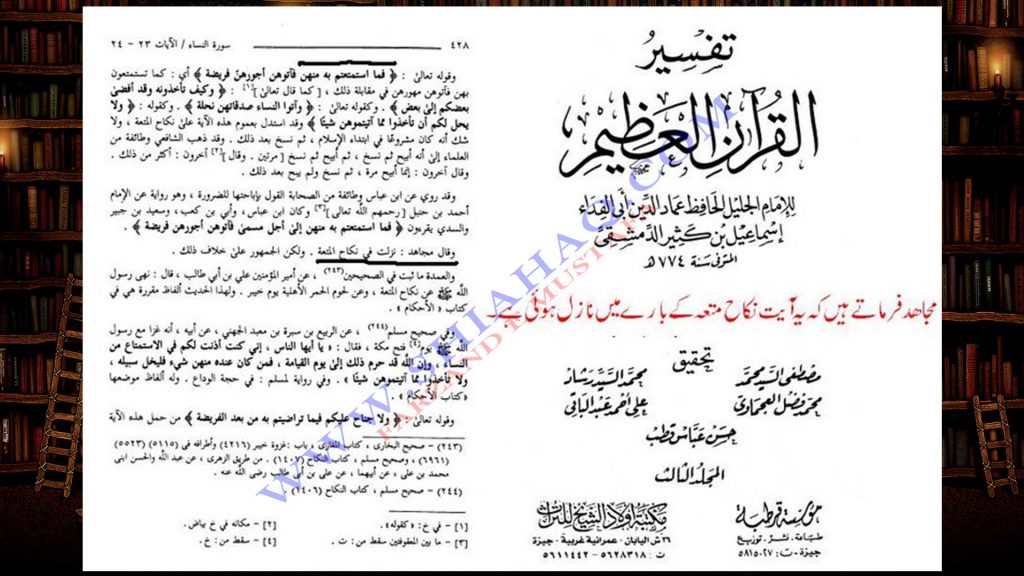 سورة النساء / الآيات ٢٣ - ٢٤
٤٢٨
وقوله تعالىٰ : ﴿ فما استمتعتم به منهن فآتوهن أجورهن فريضة ﴾ أي : كما تستمتعون
بهن فآتوهن مهورهن في مقابلة ذلك ، [ كما قال تعالىٰ ][١] : ﴿ وكيف تأخذونه وقد أفضىٰ
بعضكم إلىٰ بعض ﴾ . وكقوله تعالىٰ : ﴿ وآتوا النساء صدقاتهن نحلة ﴾ . وكقوله : ﴿ ولا
يحل لكم أن تأخذوا مما آتيتموهن شيئًا ﴾ وقد استدل بعموم هذه الآية علىٰ نكاح المتعة ، ولا
شك أنه كان مشروعًا في ابتداء الإسلام ، ثم نسخ بعد ذلك . وقد ذهب الشافعي وطائفة من
العلماء إلىٰ أنه أبيح ثم نسخ ، ثم أبيح ثم نسخ [ مرتين . وقال ][٢] آخرون : أكثر من ذلك .
وقال آخرون : إنما أبيح مرة ، ثم نسخ ولم يبح بعد ذلك .
وقد روي عن ابن عباس وطائفة من الصحابة القول بإباحتها للضرورة ، وهو رواية عن الإمام
أحمد بن حنبل [ رحمهم الله تعالىٰ ][٣] وكان ابن عباس، وأبي بن كعب، وسعيد بن جبير
والسدي يقرءون ﴿ فما استمتعتم به منهن إلى أجل مسمىٰ فآتوهن أجورهن فريضة ﴾ .
وقال مجاهد : نزلت في نكاح المتعة . ولكن الجمهور علىٰ خلاف ذلك .
والعمدة ما ثبت في الصحيحين (٢٤٣) ، عن أمير المؤمنين علي بن أبي طالب ، قال : نهى رسول
الله ﷺ عن نكاح المتعة ، وعن لحوم الحمر الأهلية يوم خيبر . ولهذا الحديث ألفاظ مقررة هي في
كتاب « الأحكام » .
وفي صحيح مسلم (٢٤٤) ، عن الربيع بن سبرة بن معبد الجهني ، عن أبيه ، أنه غزا مع رسول
الله ﷺ يوم[٤] فتح مكة ، فقال : « يا أيها الناس ، إني كنت أذنت لكم في الاستمتاع من
النساء ، وإن الله قد حرم ذلك إلىٰ يوم القيامة ، فمن كان عنده منهن شيء فليخل سبيله ،
ولا تأخذوا مما آتيتموهن شيئًا » . وفي رواية لمسلم : في حجة الوداع . وله ألفاظ موضعها
«كتاب الأحكام» .
وقوله تعالىٰ : ﴿ ولا جناح عليكم فيما تراضيتم به من بعد الفريضة ﴾ من حمل هذه الآية
(٢٤٣) - صحيح البخاري ، كتاب المغازي ، باب :غزوة خيبر (٤٢١٦) وأطرافه فى (٥١١٥) (٥٥٢٣)
(٦٩٦١) ، وصحيح مسلم ، كتاب النكاح (١٤٠٧) . من طريق الزهرى ، عن عبد الله والحسن ابنى
محمد بن على ، عن أبيهما ، عن على بن أبى طالب رضى الله عنه .
(٢٤٤) - صحيح مسلم ، كتاب النكاح (١٤٠٦) .
[١] - في خ : «كقوله» .
[٢] - مكانه في خ بياض.
[٣] - ما بين المعقوفتين سقط من: ت .
[٤] - سقط من: خ.
تفسير
القرآن العظيم
للإمام الجليل الحافظ عماد الدين أبي الفداء
إسماعيل بن كثير الدمشقي
المتوفى سنة ٧٧٤ هـ
مجاهد فرماتے ہیں کہ یہ آیت نکاح متعہ کے بارے میں نازل ہوئی ہے۔
تحقيق
مصطفى السيد محمد
محمد السيد رشاد
محمد فضل العجماوي
علي أحمد عبد الباقي
حسن عباس قطب
المجلد الثالث
مؤسسة قرطبة
طباعة . نشر . توزيع
جيزة - ت : ٥٨١٥٠٢٧
مكتبة أولاد الشيخ للتراث
٣٦ ش اليابان - عمرانية غربية - جيزة
ت : ٥٦٢٨٣١٨ - ٥٦١١٤٤٢
WWW.SHIAHAQ.COM
FARZAND E MUSTAFA